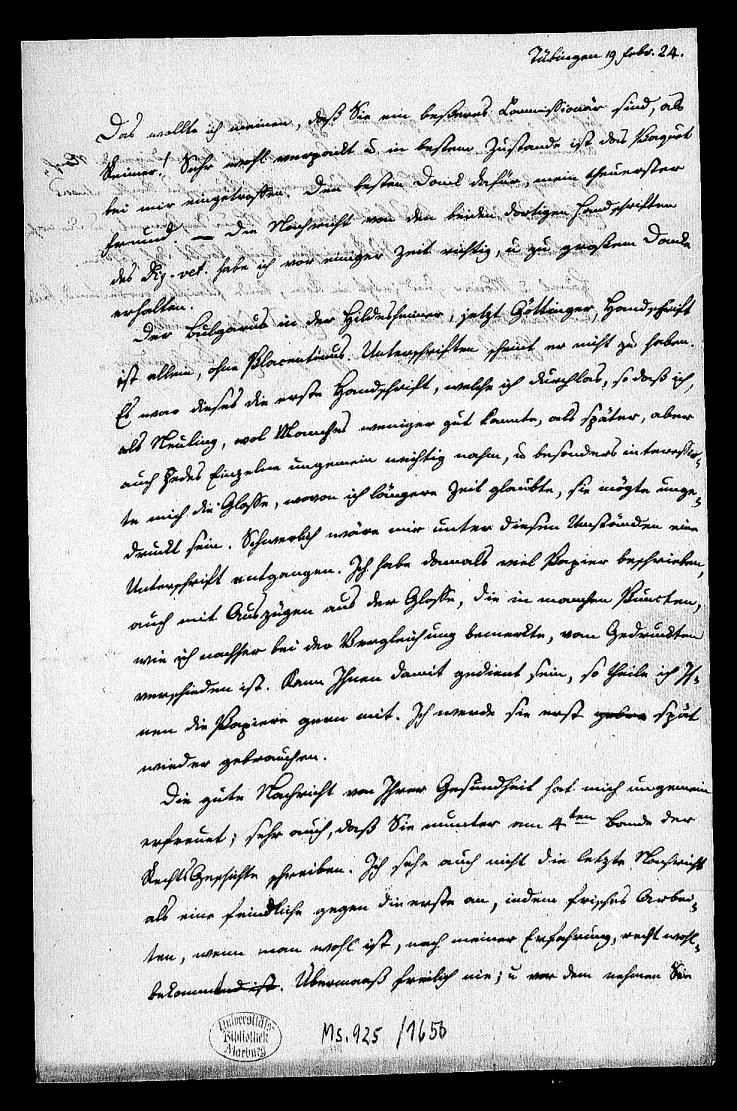 Tübingen 19 Febr. 24.
Das wollte ich meinen, daß Sie ein beßeres Commissionär sind, als
Keiner! Sehr wohl verpackt u in bestem Zustande ist das Paquet
bei mir eingetroffen. Den besten Dank dafür, mein theuerster
Freund — Die Nachricht von den beiden dortigen Handschriften
des Dig. vet. habe ich vor einiger Zeit richtig, u zu großem Danke
erhalten.
Der Bulgarus in der Hildesheimer, jetzt Göttinger, Handschrift
ist allein, ohne Placentinus. Unterschriften scheint er nicht zu haben.
Es war dieses die erste Handschrift, welche ich durchlas, so daß ich,
als Neuling, wol Manches weniger gut kannte, als später, aber
auch Jedes Einzelne ungemein wichtig nahm, u besonders interessir-
te mich die Glosse, wovon ich längere Zeit glaubte, sie mögte unge-
druckt sein. Schwerlich wäre mir unter diesen Umständen eine
Unterschrift entgangen. Ich habe damals viel Papier beschrieben,
auch mit Auszügen aus der Glosse, die in manchen Puncten,
wie ich nachher bei der Vergleichung bemerkte, vom Gedruckten
verschieden ist. Kann Ihnen damit gedient sein, so theile ich Ih-
nen die Papiere gern mit. Ich werde sie erst spät
wieder gebrauchen.
Die gute Nachricht von Ihrer Gesundheit hat mich ungemein
erfreuet; sehr auch, daß Sie munter am 4ten Bande der
RechtsGeschichte schreiben. Ich sehe auch nicht die letzte Nachricht
als eine feindliche gegen die erste an, indem frisches Arbei-
ten, wenn man wohl ist, nach meiner Erfahrung, recht wohl-
bekommt. Übermaaß freilich nie; u vor dem nehmen Sie
Universitäts-
Bibliothek
Marburg
Ms. 925 /1656